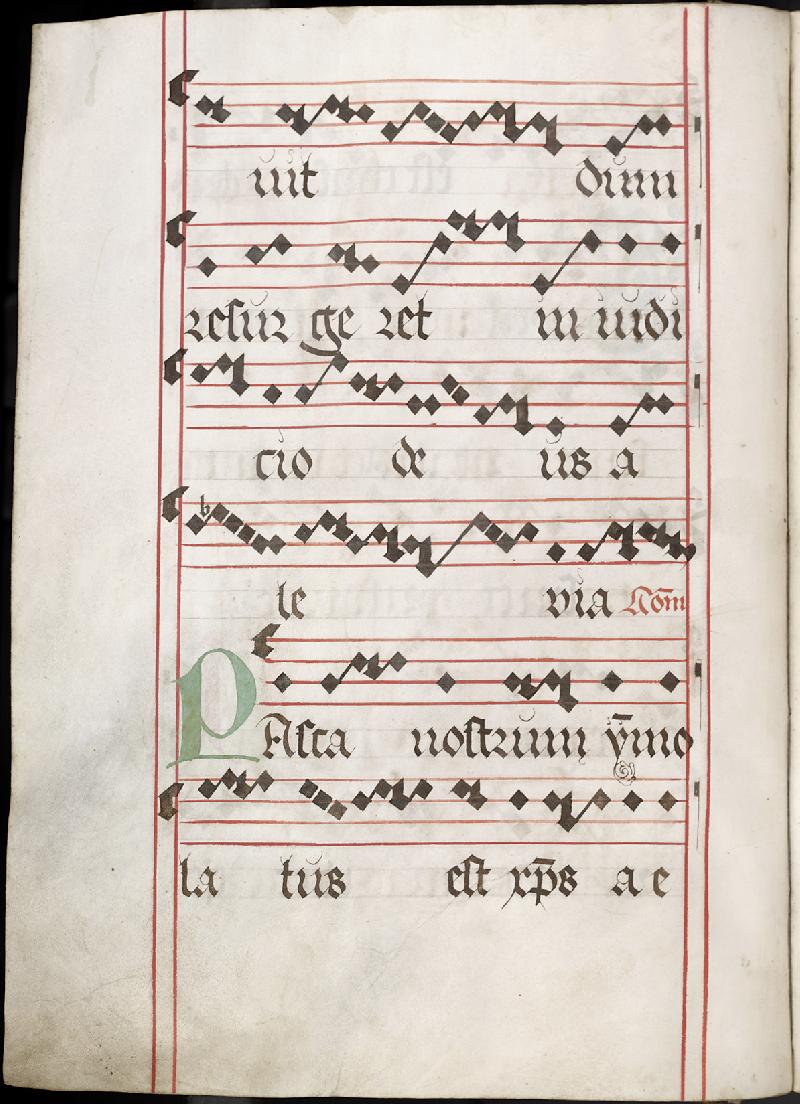 uit dum
resur ge ret in iudi
cio de us a
le via Com̄
PAsca nostrum ȳmo
la tus est xp̄s a e